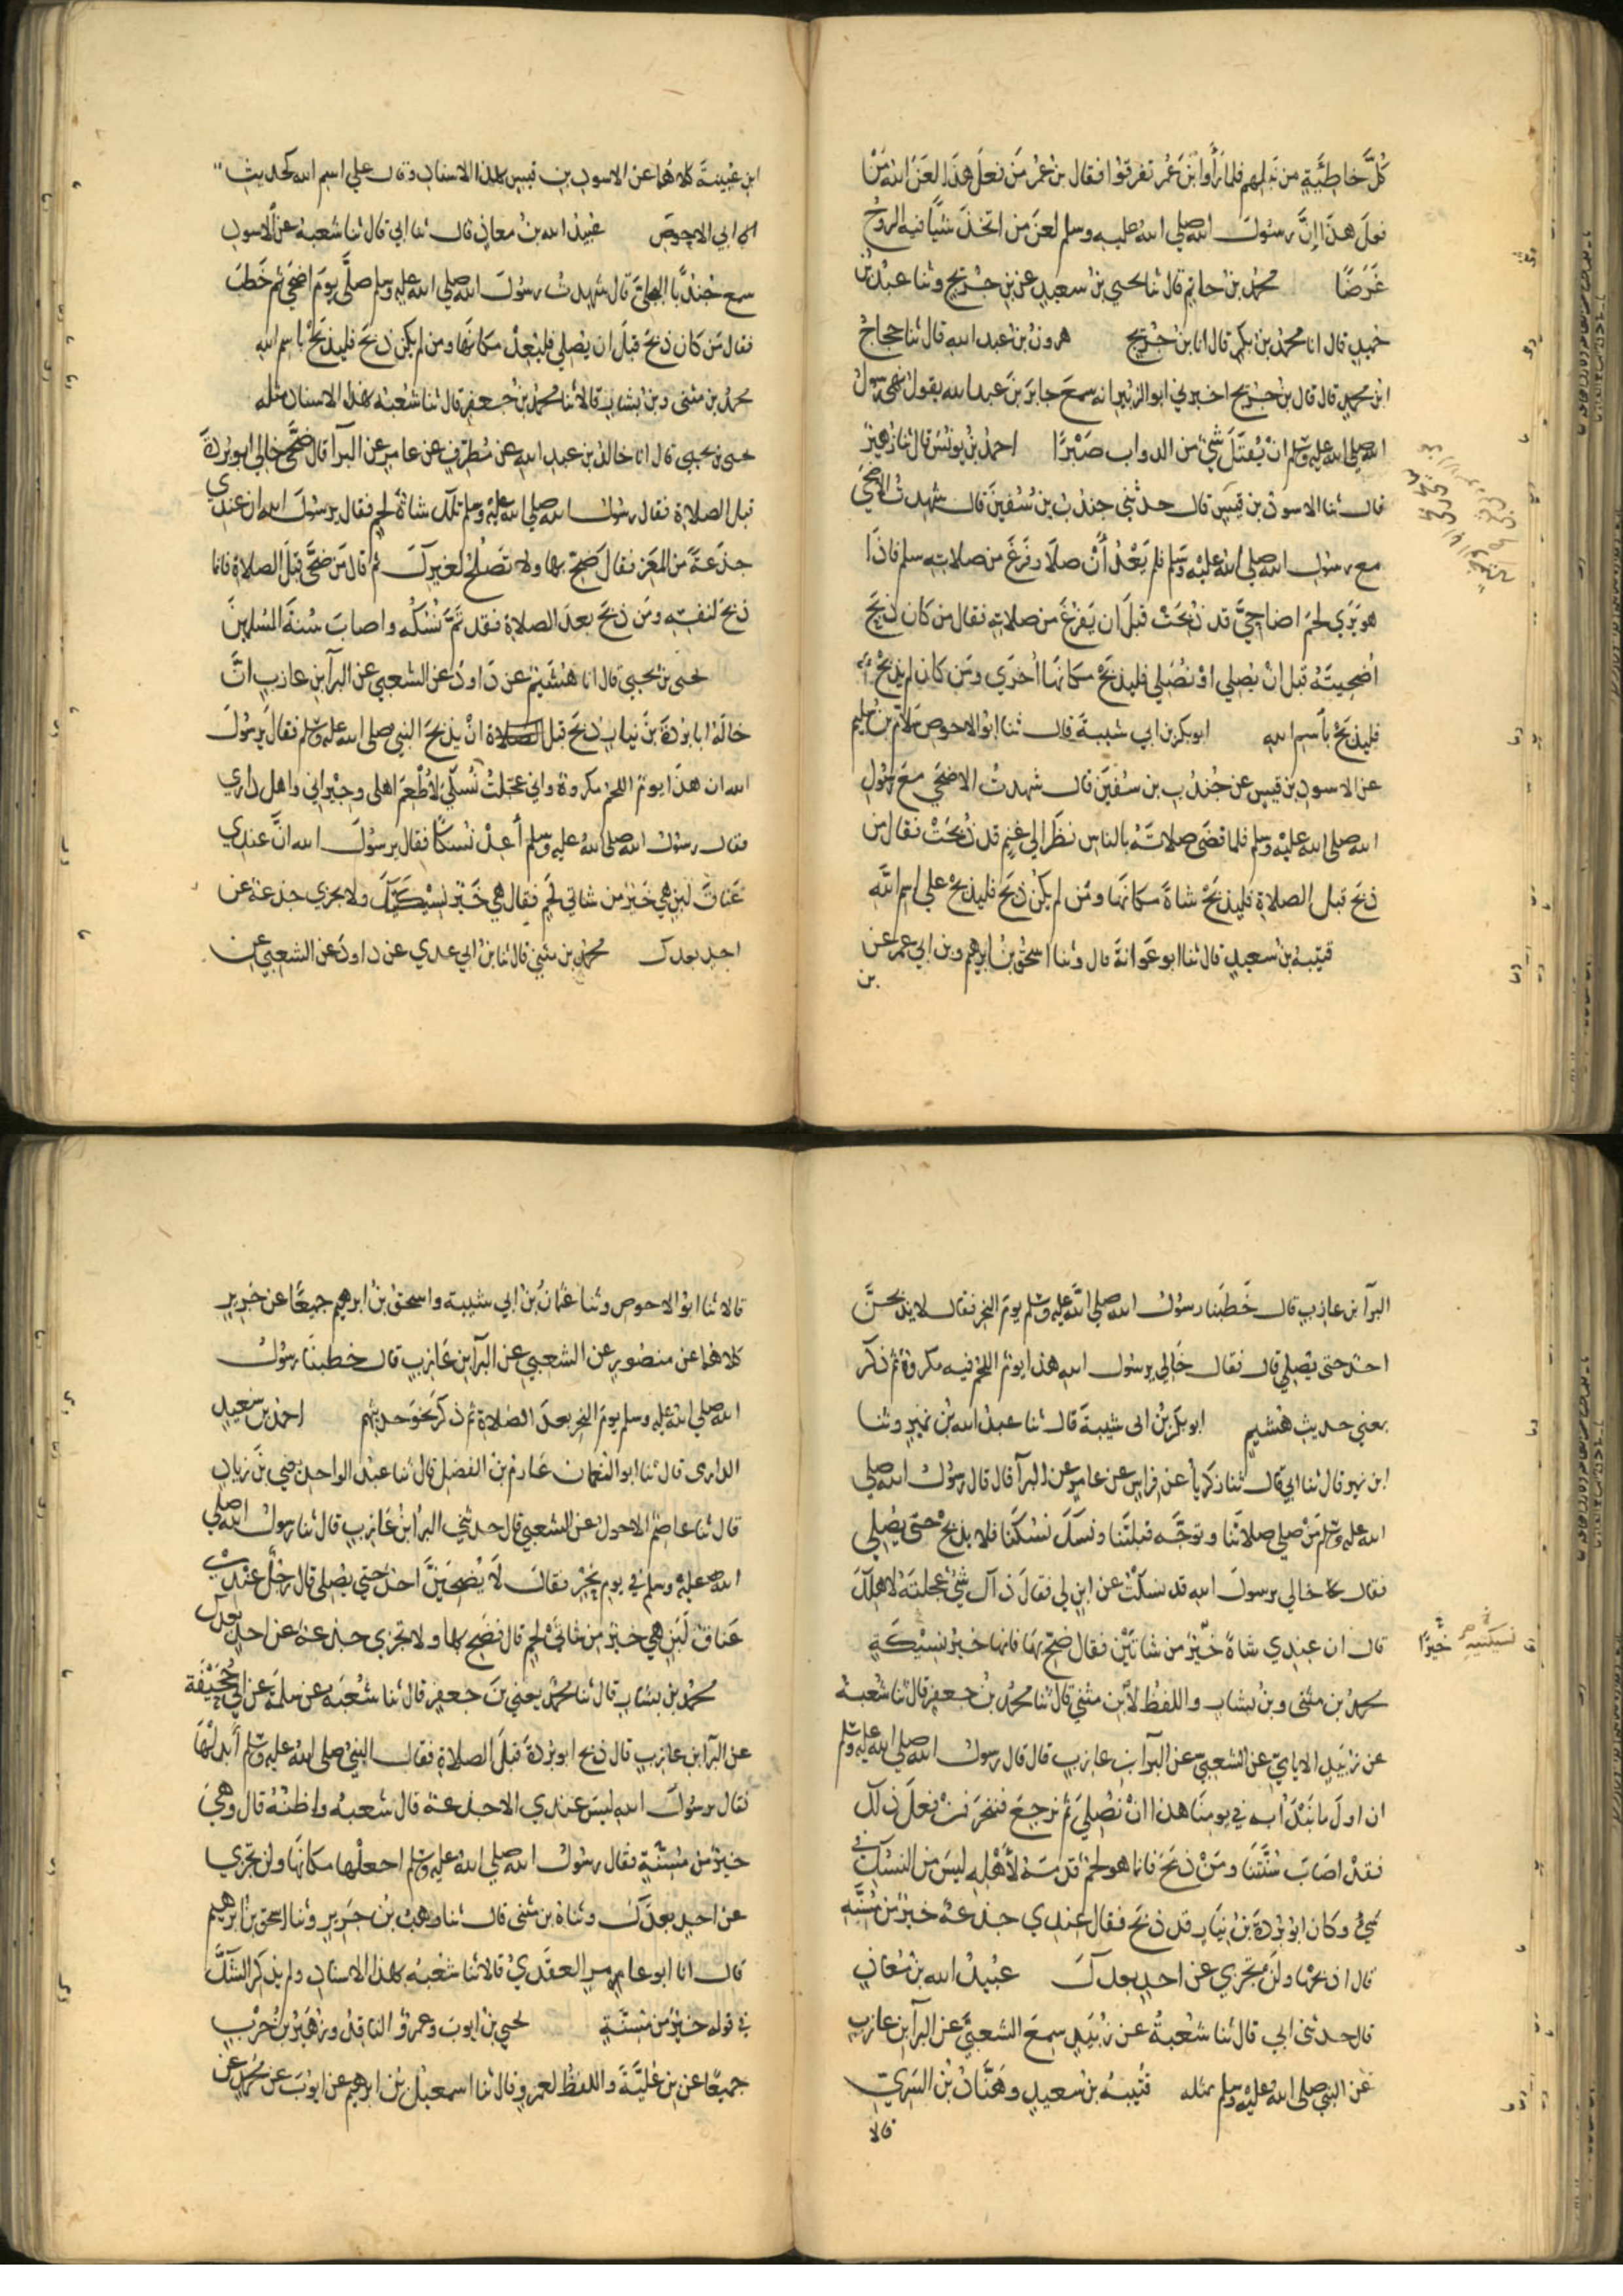 كُلَّ خَاطِئَةٍ من نَبلهم فلما رَأَوا ابنَ عُمَرَ تفرقوا فقال بن عُمَرَ مَن فعَلَ هذَا لعَنَ اللهُ مَنْ
فعلَ هذَا إنَّ رسُولَ الله صلى اللهُ عليه وسلم لعنَ مَن اتخذَ شيًا فيه الروحُ
غَرَضًا محمد بن حاتم قال ثنا يحيى بن سعيد عن بن جُرَيج وثنا عبدُ بنُ
حُميدٍ قال انا محمد بن بكر قال انا بن جُرَيج هرون بن عبد الله قال ثنا حجاجُ
ابن محمدٍ قال قال بن جُرَيج اخبرني ابو الزبير انه سمعَ جابرَ بنَ عبد الله يقول نهى رسولُ
الله صلى الله عليه وسلم انْ يُقتَلَ شيءٌ من الدواب صَبْرًا احمد بن يونُسَ قال ثنا زُهيرٌ
قال ثنا الاسود بن قيسٍ قال حدثني جندبُ بن سُفينَ قال شهدتُ الاضحى
مع رسول الله صلى الله عليه وسلم فلم يَعْدُ أنْ صلا وفرَغَ من صلاته سلم فاذَا
هو يَرَي لحمَ اضاحِيَّ قد ذُبحَتْ قبلَ ان يَفرُغَ من صلاته فقال من كان ذبَحَ
اُضحِيتَهُ قبل انْ يُصلي اوْ نُصَلي فليذبَحْ مكانَها اُخرَي ومَن كان لم يذبحْ
فليذبَحْ باسم الله ابو بكر بن ابي شيبةَ قال ثنا ابو الاحوص سلامُ بن سُليم
عن الاسود بن قيسٍ عن جُندُبِ بن سُفينَ قال شهدتُ الاضحَى معَ رسُولِ
الله صلى الله عليه وسلم فلما قضَى صلاتَهُ بالناس نظَرَ الي غنمٍ قد ذُبحَتْ فقال من
ذبَحَ قبل الصلاةِ فليذبَحْ شاةً مكانَها ومَن لم يكُن ذبَحَ فليذبحْ علي اسم الله
قتيبة بن سعيدٍ قال ثنا ابو عَوانةَ قال وثنا اسحق بن ابرهيم وبن ابي عمر عن
بن
ابن عُيينةَ كلاهُما عن الاسود بن قيس بهذا الاسناد وقال علي اسم الله كحديث
ابي الاحوص عُبيدُ الله بن معاذٍ قال ثنا ابي قال ثنا شعبة عن الاسود
سمع جُندُبًا البجليَّ قال شهدتُ رسُولَ الله صلى الله عليه وسلم صلَّى يومَ اضحى ثم خَطَبَ
فقال مَن كان ذبحَ قبلَ ان يُصلي فليُعِدْ مكانَها ومن لم يكن ذبحَ فليذبَحْ باسم الله
محمد بن مثنى وبن بشار قالا ثنا محمد بن جعفر قال ثنا شُعبَة بهذا الاسناد مثله
يحيى بن يحيى قال انا خالدُ بن عبد الله عن مُطرِّفٍ عن عامرٍ عن البرآ قال ضحَّى خالي ابو بُردةَ
قبل الصلاة فقال رسُول الله صلى الله عليه وسلم تلكَ شاةُ لحمٍ فقال يرسُولَ الله ان عندي
جذَعةً من المَعَزِ فقال ضَحِّ بها ولا تصلُحُ لغيركَ ثم قال مَن ضحَّى قبلَ الصلاةِ فانما
ذبحَ لنفسِه ومَن ذبحَ بعدَ الصلاة فقد تَمَّ نُسُكُه واصابَ سُنةَ المسلمينَ
يحيى بن يحيى قال انا هُشَيمٌ عن دَاودَ عن الشعبي عن البرآ بن عازبٍ انَّ
خالَهُ ابا بُردةَ بنَ نيارٍ ذبحَ قبل الصلاة انْ يذبَحَ النبي صلى الله عليه وسلم فقال يرسُولَ
الله ان هذا يومٌ اللحمُ مكروهٌ واني عجَّلتُ نُسُكي لاُطعِمَ اهلي وجيراني واهل داري
فقال رسول الله صلى الله عليه وسلم أعِدْ نُسكًا فقال يرسُولَ الله انَّ عندي
عَناقَ لبنٍ هي خَيرٌ من شاتَي لحمٍ فقال هي خَيرُ نسيكَتَيكَ ولا تجزي جذعةٌ عن
احدٍ بعدك محمد بن مثنى قال ثنا بن ابي عدي عن داودَ عن الشعبي عن
البرآ ابن عازبٍ قال خَطَبَنا رسُولُ الله صلى الله عليه وسلم يومَ النحر فقال لا يذبحنَّ
احدٌ حتى يصلي قال فقال خَالي يرسُولَ الله هذا يومٌ اللحمُ فيه مكروهٌ ثم ذكَرَ
بمعني حديث هُشيم ابو بكر بن ابي شيبةَ قال ثنا عبدُ الله بن نميرٍ وثنا
ابن نمير قال ثنا ابي قال ثنا زكرياءُ عن فراسٍ عن عامرٍ عن البرآ قال قال رسُولُ الله صلى
الله عليه وسلم مَنْ صلي صلاتَنا وتوَجَّه قبلتَنا ونسَكَ نُسُكَنَا فلا يذبحْ حتَّى يصلي
فقال خالي يرسولَ الله قد نسَكْتُ عن ابنٍ لي فقالَ ذَاكَ شيٌ عجلتَهُ لاهلكَ
قال ان عندِي شاةً خَيرٌ من شاتَيْن فقال ضحِّ بها فانها خيرُ نسيكَةٍ
نسيكتيه خيرًا
محمد بن مثنى وبن بشار واللفظ لابن مثنى قال ثنا محمد بن جعفر قال ثنا شعبةُ
عن زُبَيدٍ الايامي عن الشعبي عن البرآ بن عازبٍ قال قال رسولُ الله صلى الله عليه وسلم
ان اولَ ما نَبْدَأُ به في يومنا هذا انْ نُصليَ ثم نرجعَ فننحرَ فمن فعَلَ ذلك
فقد اصَابَ سُنَّتَنا ومَنْ ذبَحَ فانما هو لحمٌ قدمَهُ لأهله ليسَ من النسُكِ في
شيءٍ وكان ابو بُردةَ بنُ نيارٍ قد ذبحَ فقال عندي جذعةٌ خيرٌ من مُسنَّةٍ
قال اذبحْها ولَنْ تجزيَ عن احدٍ بعدكَ عُبيدُ الله بن مُعاذٍ
قال حدثني ابي قال ثنا شُعبةُ عن زُبَيدٍ سمعَ الشعبيَّ عن البرآ بن عازبٍ
عن النبي صلى الله عليه وسلم مثله قتيبةُ بن سعيدٍ وهَنَّادُ بن السَريِّ
قالا
قالا ثنا ابو الاحوص وثنا عثمانُ بن ابي شيبة واسحقُ بن ابرهيم جميعًا عن جرير
كلاهما عن منصورٍ عن الشعبي عن البرآ بن عَازبٍ قال خطبنا رسُولُ
الله صلى الله عليه وسلم يومَ النحر بعدَ الصلاة ثم ذكر نحوَ حديثهم احمد بن سعيدٍ
الدارمي قال ثنا ابو النعمان عَارِمُ بن الفضل قال ثنا عبدُ الواحد يعني بنَ زيادٍ
قال ثنا عاصمٌ الاحولُ عن الشعبي قال حدثني البرآ بنُ عَازبٍ قال ثنا رسولُ الله صلى
الله عليه وسلم في يوم نحرٍ فقال لَا يُضَحِّيَنَّ احدٌ حتى يُصلي قال رجُلٌ عندي
عَناقُ لَبَنٍ هي خيرٌ من شاتَيْ لحمٍ قال فضَحِّ بها ولا تجزي جذعةٌ عن احدٍ بعدك
محمد بن بشار قال ثنا محمدٌ يعني بنَ جعفرٍ قال ثنا شُعبَة عن سلمةَ عن ابي جُحَيْفَةَ
عن البرآ ابن عازبٍ قال ذبح ابو بُردةَ قبلَ الصلاة فقال النبي صلى الله عليه وسلم أَبدلْها
فقال يرسُولَ الله ليسَ عندي الا جذعةٌ قال شعبةُ واظنهُ قال وهيَ
خيرٌ من مُسنَّةٍ فقال رسُولُ الله صلى الله عليه وسلم اجعلْها مكانَها ولن تجزي
عن احدٍ بعدَكَ وثناهُ بن مثنى قال ثنا وهبُ بن جَريرٍ وثنا اسحق بن ابرهيم
قال انا ابو عامرٍ العقَديُّ قالا ثنا شُعبَةُ بهذا الاسناد ولم يذكر الشكَّ
في قوله خيرٌ من مُسنَّةٍ يحيى بن ايوبَ وعمرٌو الناقدُ وزُهَيرُ بن حَرْبٍ
جميعًا عن بن عُليَّةَ واللفظُ لعمرٍو قال ثنا اسمعيلُ بن ابرهيم عن ايوبَ عن محمدٍ عن